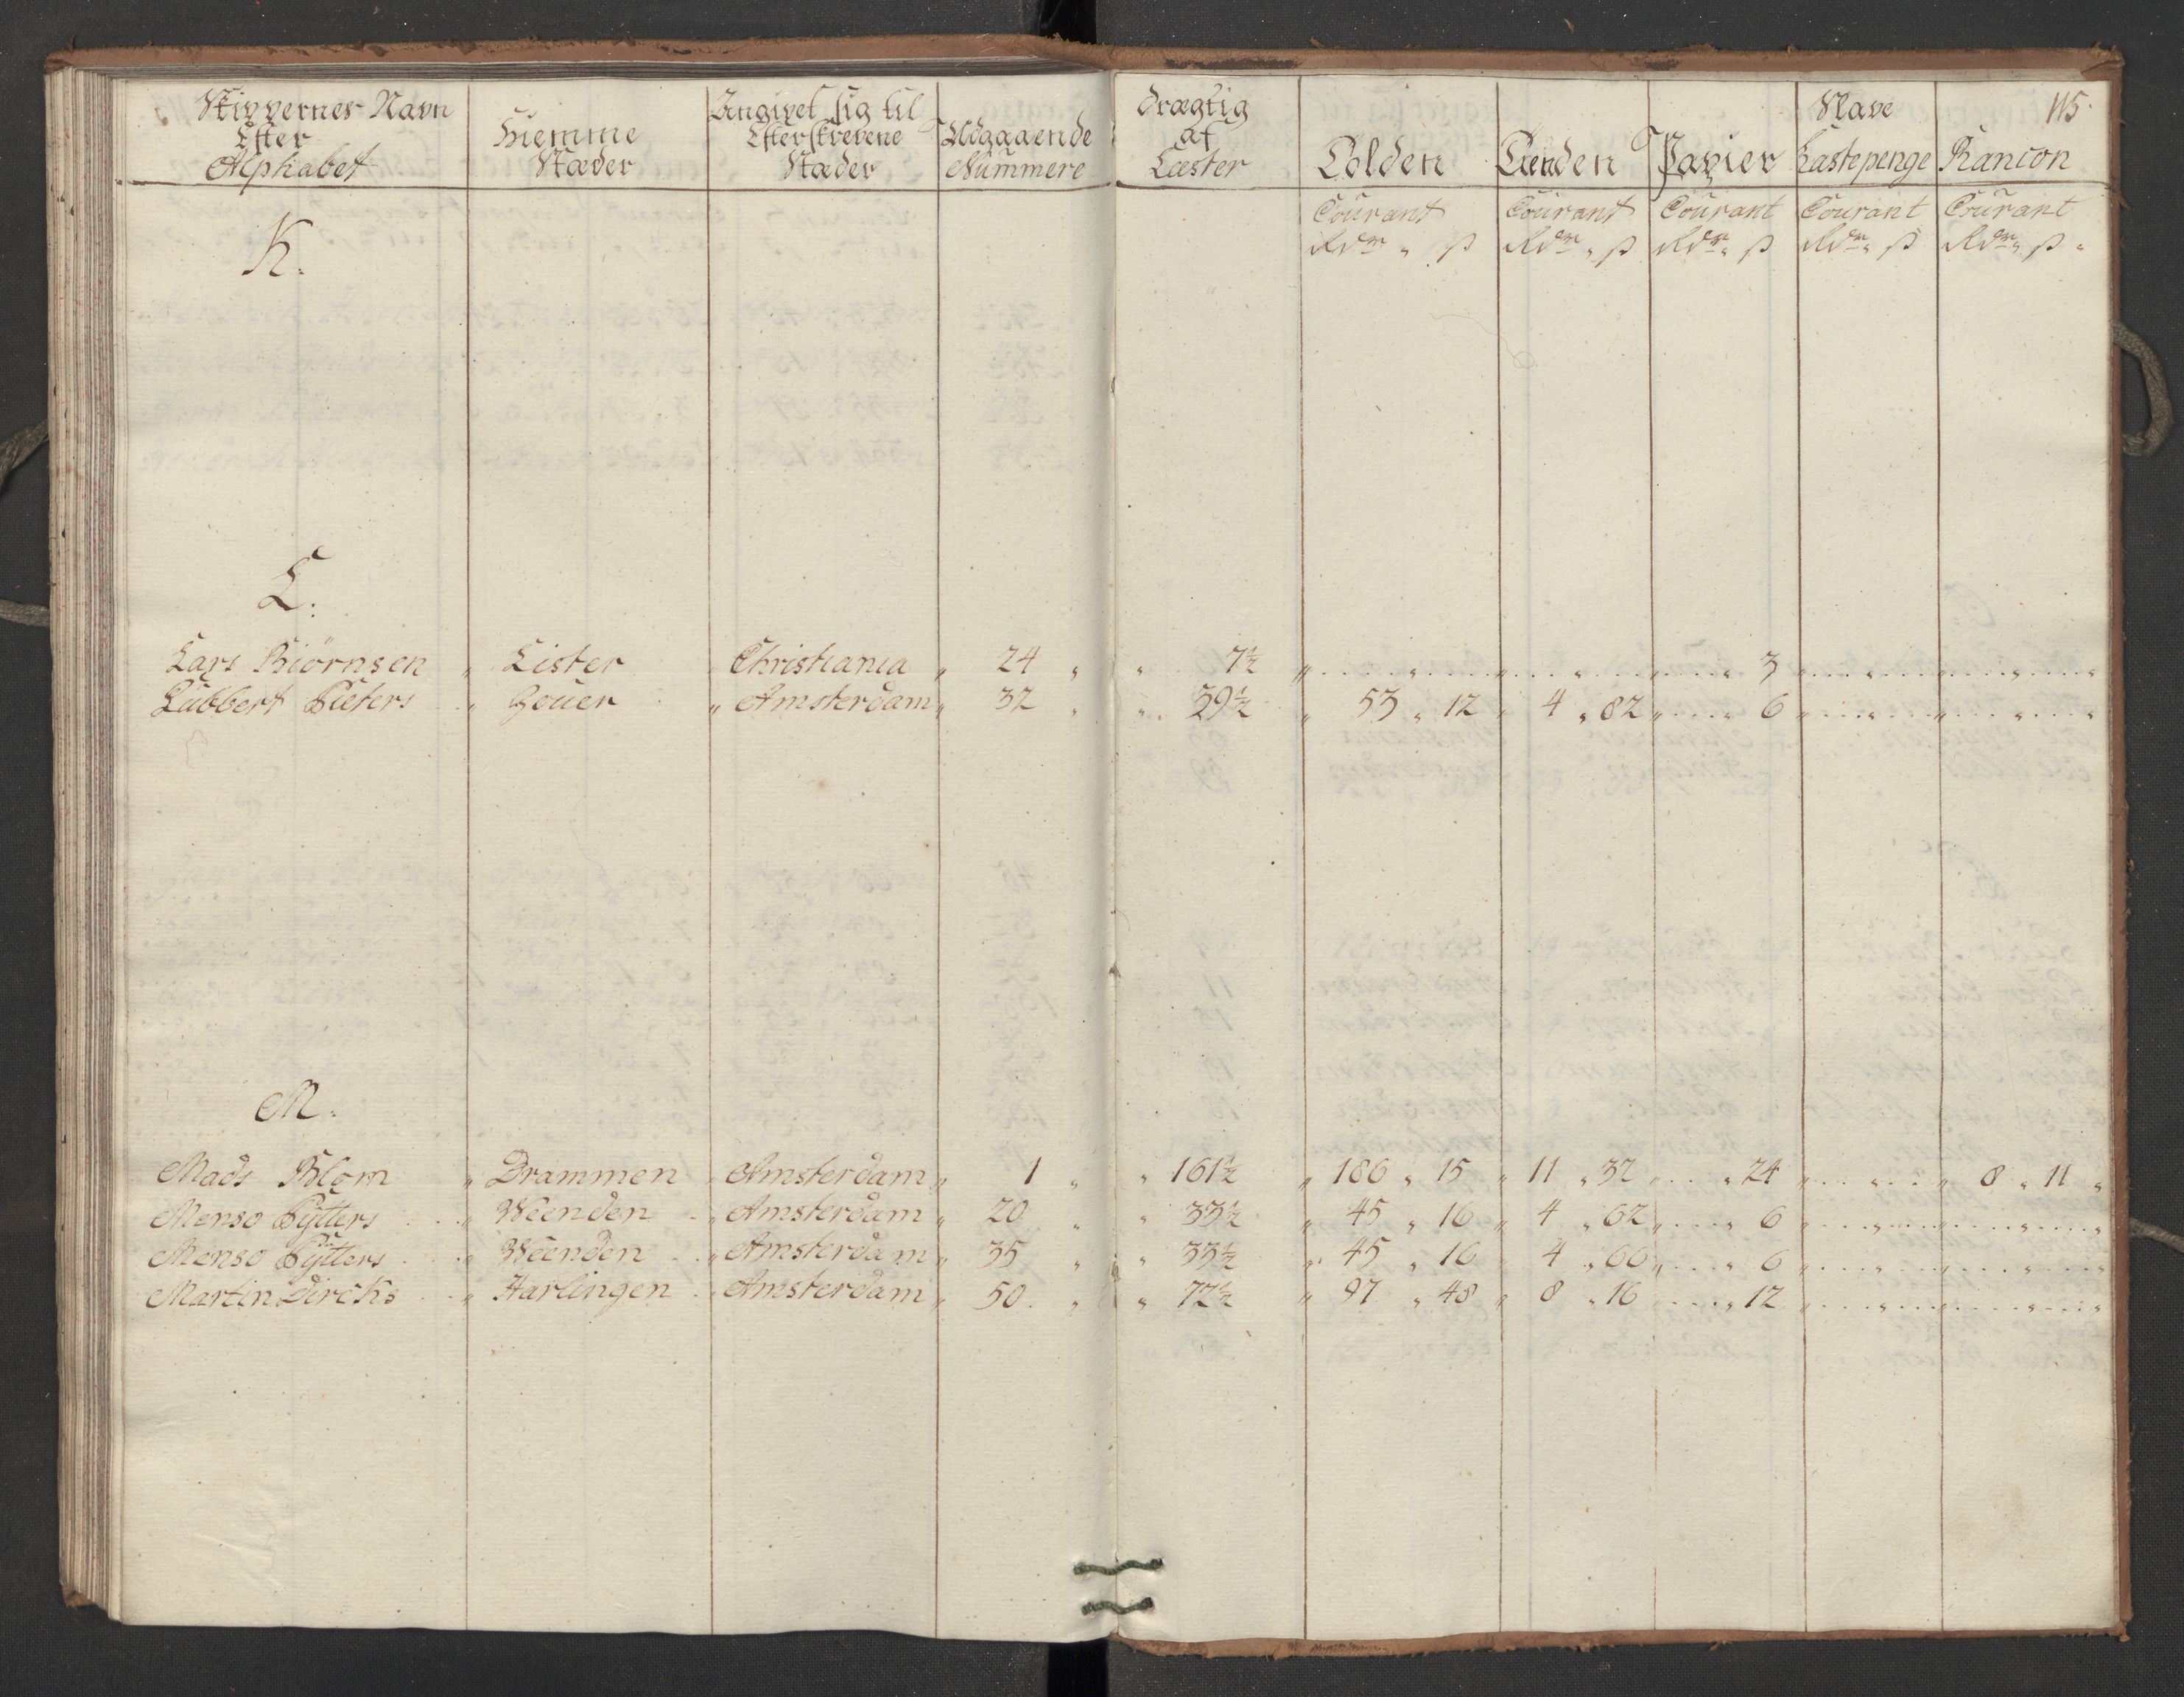 115.
Skippernes Navn Efter Alphabet | Hiemme Stæder | Angivet sig til Efterskrevene Stæder | Udgaaende Nummere | Drægtig af Læster | Tolden | Tienden | Papier | Slave Kastepenge | Rancon
Courant | Courant | Courant | Courant | Courant
Rdr „ ß | Rdr „ ß | Rdr „ ß | Rdr „ ß | Rdr „ ß
K.
L.
Lars Biørnsen „ Lister „ Christiania „ 24 „ „ 7½ „ . . . . „ . . . . „ . . . . „ . . . . „ . . . . „ 3 „ . . . . „ . . . . „ . . . . „
Lübbert Pieters „ Gouer „ Amsterdam „ 32 „ „ 39½ „ 53 „ 12 „ 4 „ 82 „ . . . . „ 6 „ . . . . „ . . . . „ . . . . „
M.
Mads Blom „ Drammen „ Amsterdam „ 1 „ „ 161½ „ 186 „ 15 „ 11 „ 32 „ . . . „ 24 „ . . . . „ . . . „ 8 „ 11 „
Menso Pÿtters . . „ Weenden „ Amsterdam „ 20 „ „ 33½ „ 45 „ 16 „ 4 „ 62 „ . . . . „ 6 „ . . . . „ . . . . „ . . . . „
Menso Pÿtters . . „ Weenden „ Amsterdam „ 35 „ „ 33½ „ 45 „ 16 „ 4 „ 60 „ . . . . „ 6 „ . . . . „ . . . . „ . . . . „
Martin Dircks . . „ Harlingen „ Amsterdam „ 50 „ „ 72½ „ 97 „ 48 „ 8 „ 16 „ . . . „ 12 „ . . . . „ . . . . „ . . . . „